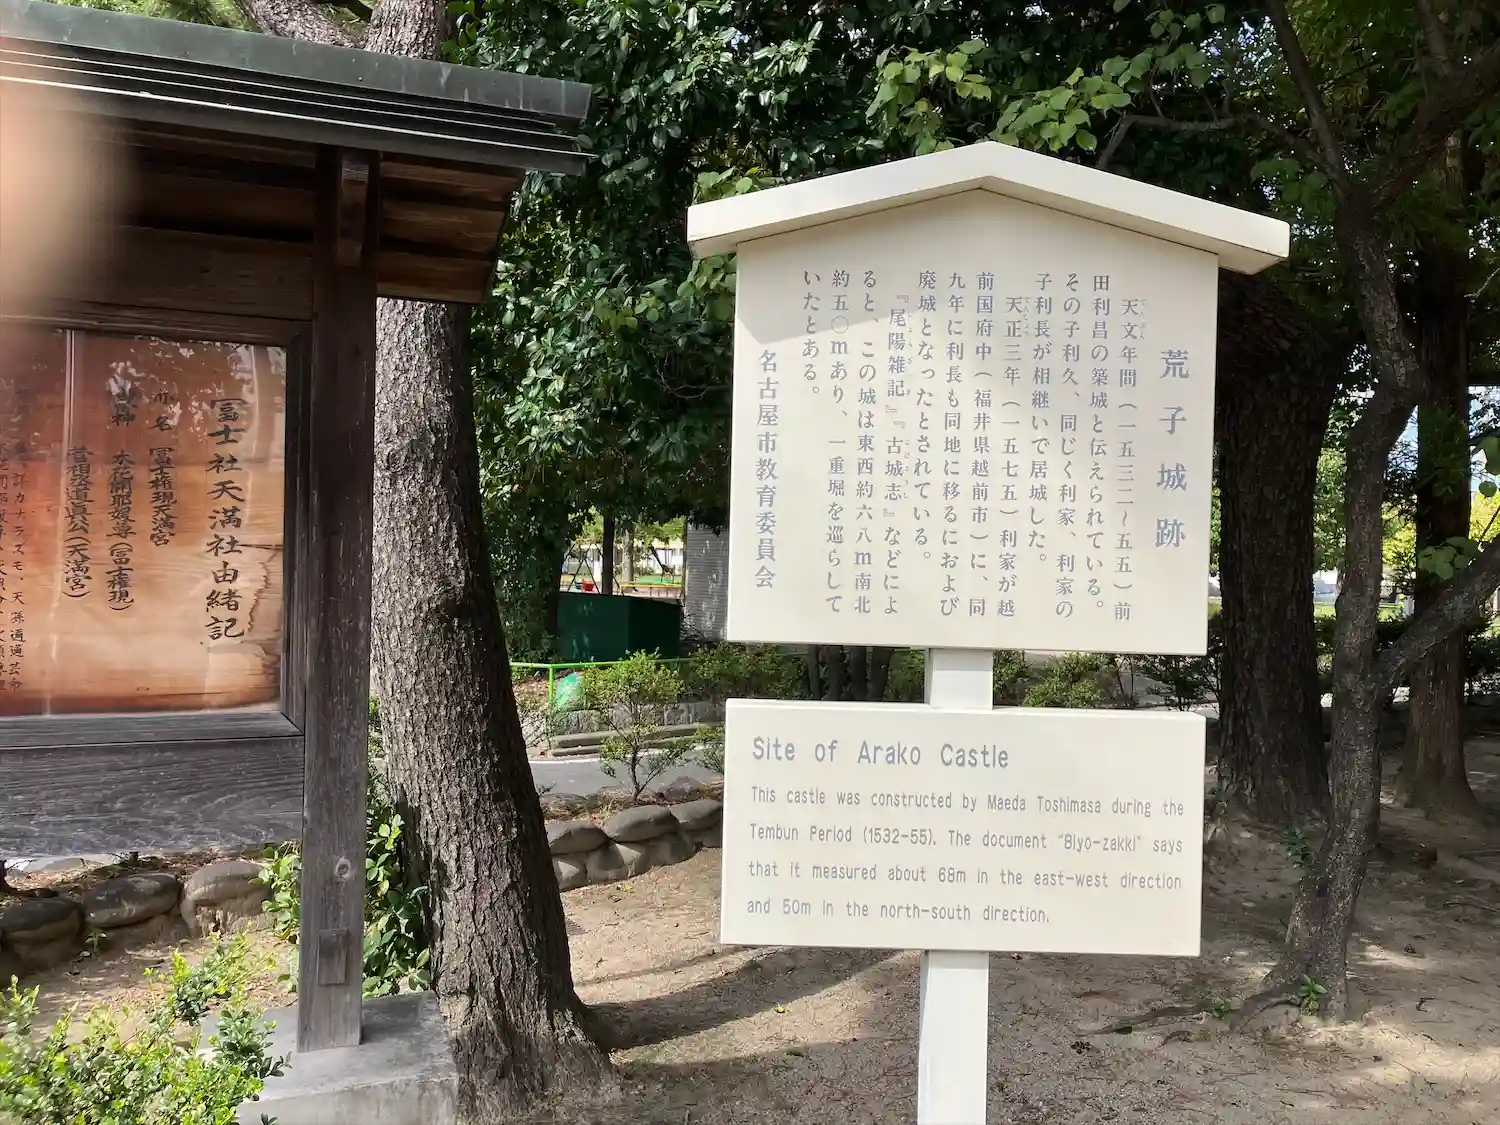 荒子城跡
天文年間（一五三二～五五）前
田利昌の築城と伝えられている。
その子利久、同じく利家、利家の
子利長が相継いで居城した。
天正三年（一五七五）利家が越
前国府中（福井県越前市）に、同
九年に利長も同地に移るにおよび
廃城となったとされている。
『尾陽雑記』『古城志』などによ
ると、この城は東西約六八ｍ南北
約五〇ｍあり、一重堀を巡らして
いたとある。
名古屋市教育委員会
Site of Arako Castle
This castle was constructed by Maeda Toshimasa during the
Tembun Period (1532-55). The document "Biyo-zakki" says
that it measured about 68m in the east-west direction
and 50m in the north-south direction.
冨士社天満社由緒記
社名 冨士権現天満宮
祭神 木花開耶姫尊(冨士権現)
菅相丞道真公(天満宮)